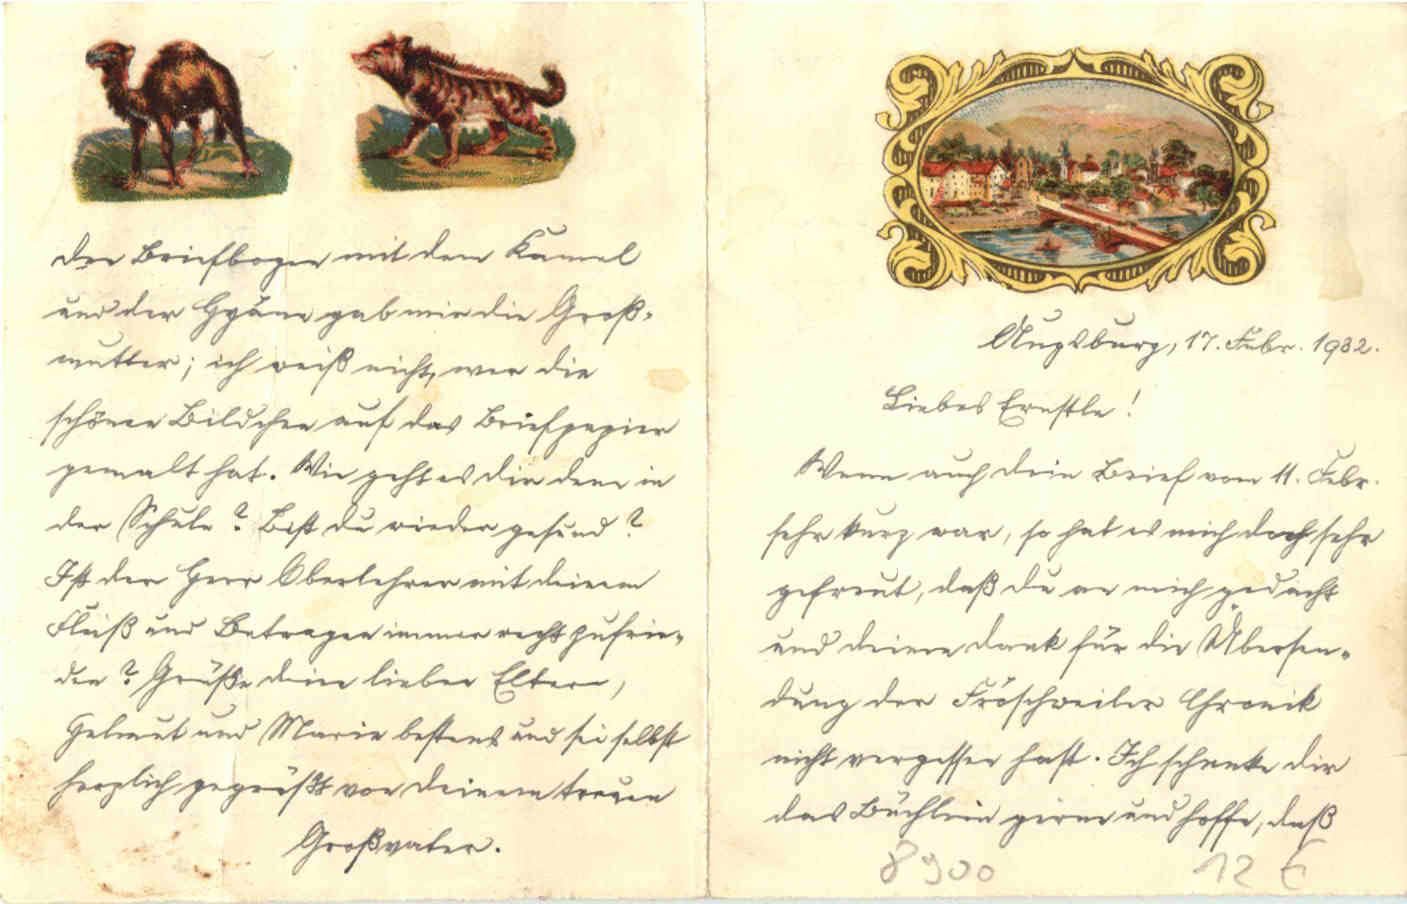 Augsburg, 17. Febr. 1932.
Liebes Ernstle!
Wenn auch dein Brief vom 11. Febr.
sehr kurz war, so hat es mich doch sehr
gefreut, daß du an mich gedacht
und deinen Dank für die Übersen-
dung der Fröschweiler Chronik
nicht vergessen hast. Ich schenke dir
das Büchlein gerne und hoffe, daß
8900 12 €
Den Briefbogen mit dem Kamel
und der Hyäne gab mir die Groß-
mutter; ich weiß nicht, wer die
schönen Bildchen auf das Briefpapier
gemalt hat. Wie geht es dir denn in
der Schule? Bist du wieder gesund?
Ist der Herr Oberlehrer mit deinem
Fleiß und Betragen immer recht zufrie-
den? Grüße deine lieben Eltern,
Helmut und Marie bestens und sei selbst
herzlich gegrüßt von deinem treuen
Großvater.